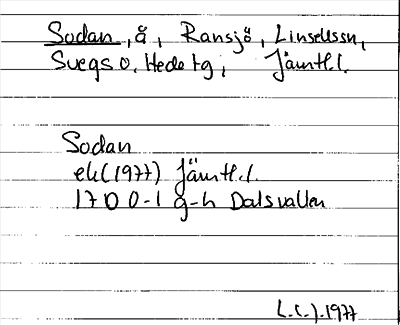 Sodan, å, Ransjö, Linsellssn,
Svegs o. Hede tg, Jämtl.l.
Sodan
ek(1977) Jämtl.l.
17D 0-1 g-h Dalsvallen
L.(-).1977